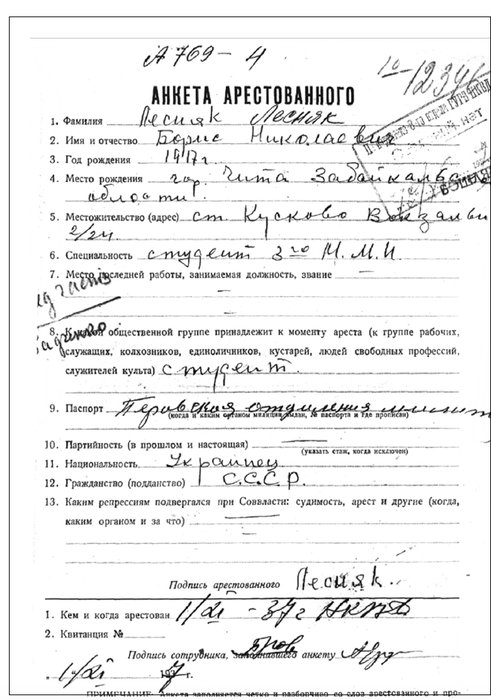 А 769-4
АНКЕТА АРЕСТОВАННОГО
1. Фамилия Лесняк Лесняк
2. Имя и отчество Борис Николаевич
3. Год рождения 1917 г.
4. Место рождения гор. Чита Забайкальс
области.
5. Местожительство (адрес) ст. Кусково Вокзальн
2/24
6. Специальность студент 3го М.М.И.
7. Место последней работы, занимаемая должность, звание —
8. К какой общественной группе принадлежит к моменту ареста (к группе рабочих,
служащих, колхозников, единоличников, кустарей, людей свободных профессий,
служителей культа) студент.
9. Паспорт Перовская отделения милит
(когда и каким органом милиции выдан, № паспорта и где прописан)
10. Партийность (в прошлом и настоящая) —
(указать стаж, когда исключен)
11. Национальность Украинец
12. Гражданство (подданство) С.С.С.Р.
13. Каким репрессиям подвергался при Соввласти: судимость, арест и другие (когда,
каким органом и за что) —
Подпись арестованного Лесняк.
1. Кем и когда арестован 1/XI - 37 г НКВД
2. Квитанция № —
Подпись сотрудника, заполнявшего анкету
1/XI 1937 г.
ПРИМЕЧАНИЕ: Анкета заполняется четко и разборчиво со слов арестованного и про-